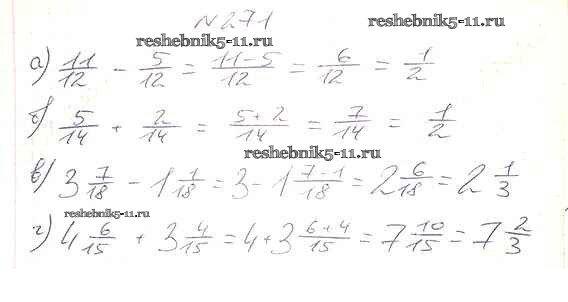 №271
reshebnik5-11.ru
reshebnik5-11.ru
а) 11/12 - 5/12 = 11-5/12 = 6/12 = 1/2
б) 5/14 + 2/14 = 5+2/14 = 7/14 = 1/2
reshebnik5-11.ru
в) 3 7/18 - 1 1/18 = 3-1 7-1/18 = 2 6/18 = 2 1/3
reshebnik5-11.ru
г) 4 6/15 + 3 4/15 = 4+3 6+4/15 = 7 10/15 = 7 2/3